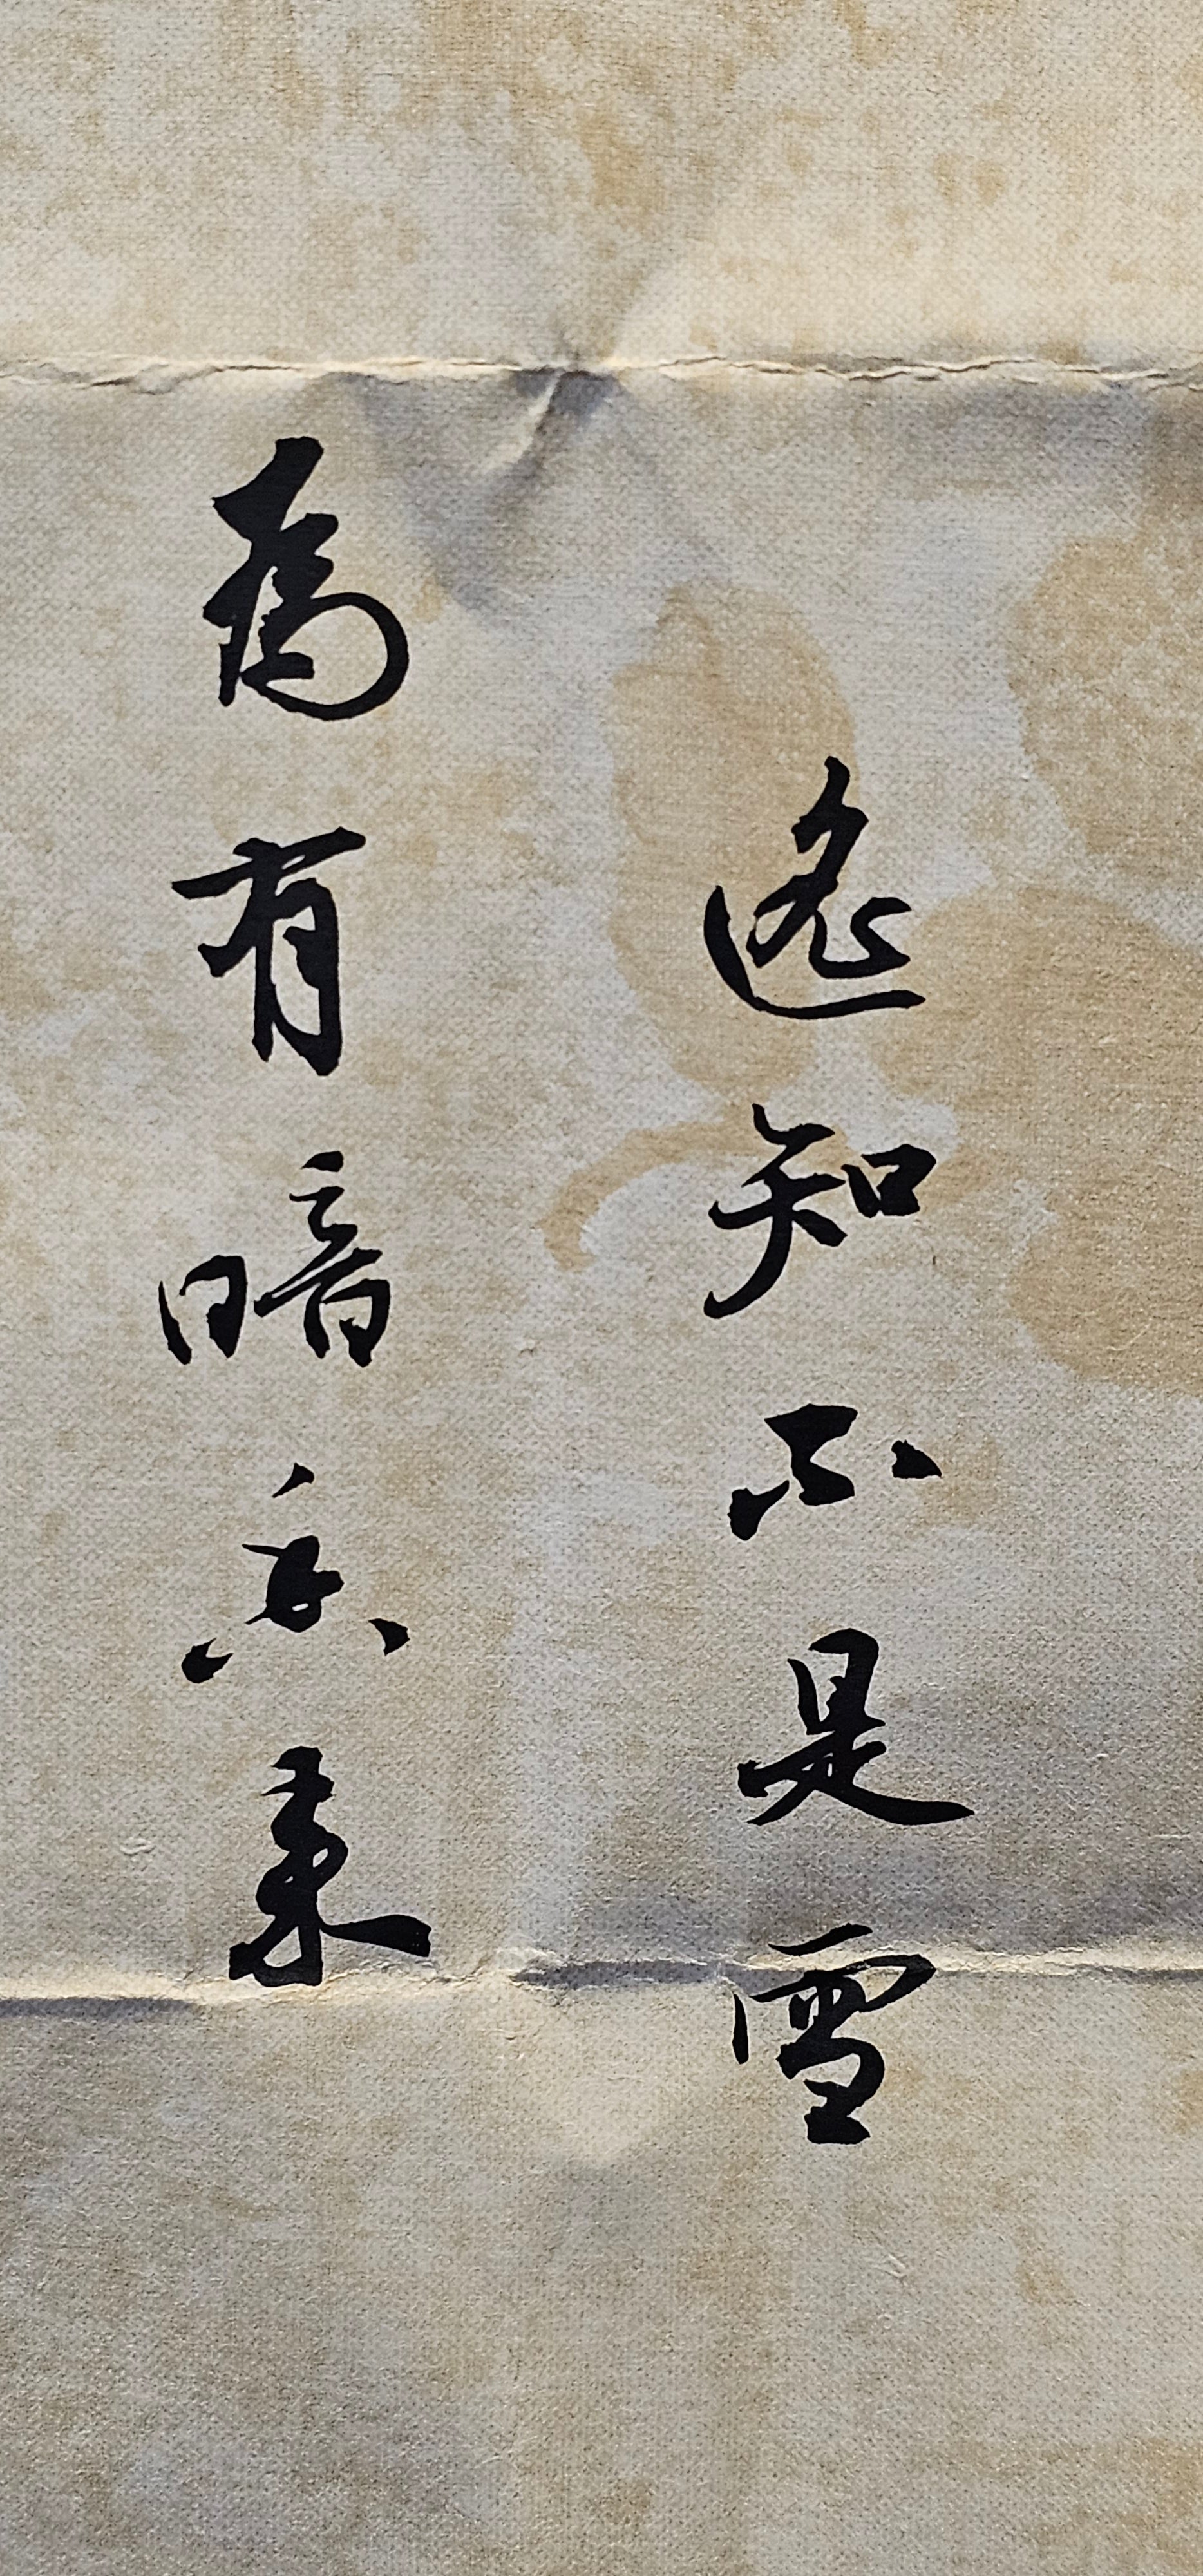 遙知不是雪
為有暗香來